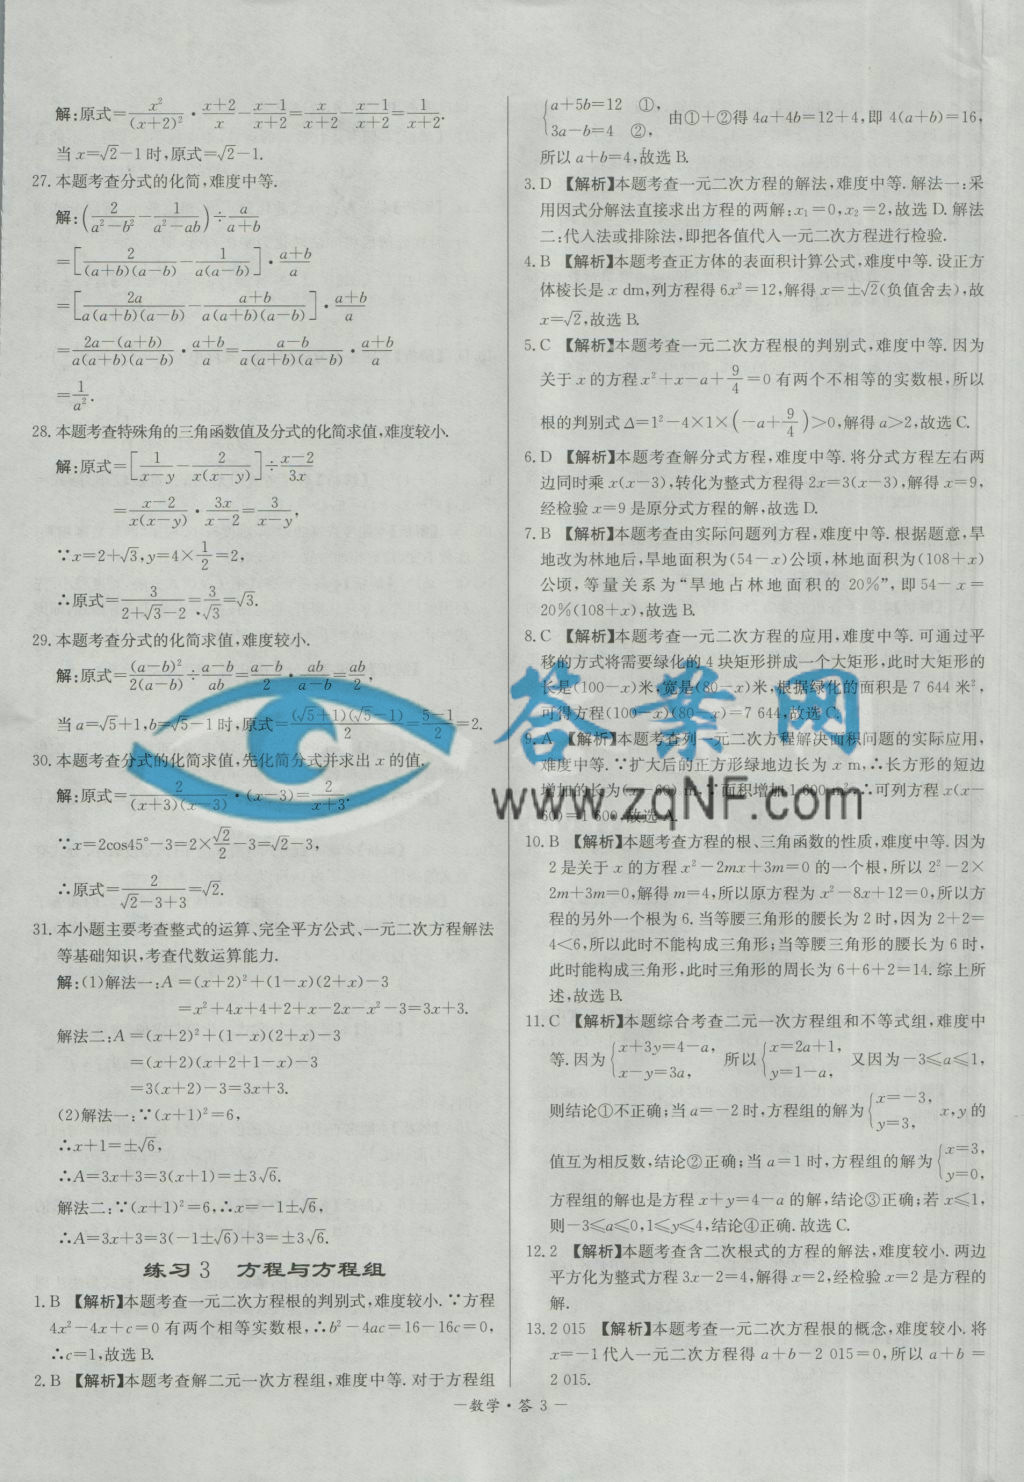 解:原式=x²/(x+2)²·(x+2)/x-(x-1)/(x+2)=x/(x+2)-(x-1)/(x+2)=1/(x+2).
当 x=√2-1 时,原式=√2-1.
27. 本题考查分式的化简,难度中等.
解:(2/(a²-b²)-1/(a²-ab))÷a/(a+b)
=[2/((a+b)(a-b))-1/(a(a-b))]·(a+b)/a
=[2a/(a(a+b)(a-b))-(a+b)/(a(a+b)(a-b))]·(a+b)/a
=(2a-(a+b))/(a(a+b)(a-b))·(a+b)/a=(a-b)/(a(a+b)(a-b))·(a+b)/a
=1/a².
28. 本题考查特殊角的三角函数值及分式的化简求值,难度较小.
解:原式=[1/(x-y)-2/(x(x-y))]÷(x-2)/3x
=(x-2)/(x(x-y))·3x/(x-2)=3/(x-y),
∵x=2+√3,y=4×1/2=2,
∴原式=3/(2+√3-2)=3/√3=√3.
29. 本题考查分式的化简求值,难度较小.
解:原式=(a-b)²/(2(a-b))÷(a-b)/ab=(a-b)/2·ab/(a-b)=ab/2,
当 a=√5+1,b=√5-1 时,原式=(√5+1)(√5-1)/2=(5-1)/2=2.
30. 本题考查分式的化简求值,先化简分式并求出 x 的值.
解:原式=2/((x+3)(x-3))·(x-3)=2/(x+3).
∵x=2cos45°-3=2×√2/2-3=√2-3,
∴原式=2/(√2-3+3)=√2.
31. 本小题主要考查整式的运算、完全平方公式、一元二次方程解法
等基础知识,考查代数运算能力.
解:(1)解法一:A=(x+2)²+(1-x)(2+x)-3
=x²+4x+4+2+x-2x-x²-3=3x+3.
解法二:A=(x+2)²+(1-x)(2+x)-3
=(x+2)(x+2+1-x)-3
=3(x+2)-3=3x+3.
(2)解法一:∵(x+1)²=6,
∴x+1=±√6,
∴A=3x+3=3(x+1)=±3√6.
解法二:∵(x+1)²=6,∴x=-1±√6,
∴A=3x+3=3(-1±√6)+3=±3√6.
练习 3 方程与方程组
1. B 【解析】本题考查一元二次方程根的判别式,难度较小. ∵方程
4x²-4x+c=0 有两个相等实数根,∴b²-4ac=16-16c=0,
∴c=1,故选 B.
2. B 【解析】本题考查解二元一次方程组,难度中等. 对于方程组
{a+5b=12 ①, 3a-b=4 ②, 由①+②得 4a+4b=12+4,即 4(a+b)=16,
所以 a+b=4,故选 B.
3. D 【解析】本题考查一元二次方程的解法,难度中等. 解法一:采
用因式分解法直接求出方程的两解:x₁=0,x₂=2,故选 D. 解法
二:代入法或排除法,即把各值代入一元二次方程进行检验.
4. B 【解析】本题考查正方体的表面积计算公式,难度中等. 设正方
体棱长是 x dm,列方程得 6x²=12,解得 x=±√2(负值舍去),故
x=√2,故选 B.
5. C 【解析】本题考查一元二次方程根的判别式,难度中等. 因为
关于 x 的方程 x²+x-a+9/4=0 有两个不相等的实数根,所以
根的判别式 Δ=1²-4×1×(-a+9/4)>0,解得 a>2,故选 C.
6. D 【解析】本题考查解分式方程,难度中等. 将分式方程左右两
边同时乘 x(x-3),转化为整式方程得 2x=3(x-3),解得 x=9,
经检验 x=9 是原分式方程的解,故选 D.
7. B 【解析】本题考查由实际问题列方程,难度中等. 根据题意,旱
地改为林地后,旱地面积为(54-x)公顷,林地面积为(108+x)
公顷,等量关系为“旱地占林地面积的 20%”,即 54-x=
20%(108+x),故选 B.
8. C 【解析】本题考查一元二次方程的应用,难度中等. 可通过平
移的方式将需要绿化的 4 块矩形拼成一个大矩形,此时大矩形的
长是(100-x)米,宽是(80-x)米,根据绿化的面积是 7 644 米²,
可得方程(100-x)(80-x)=7 644,故选 C.
9. A 【解析】本题考查列一元二次方程解决面积问题的实际应用,
难度中等. ∵扩大后的正方形绿地边长为 x m,∴长方形的短边
增加的长为(x-60) m. ∵面积增加 1 600 m²,∴可列方程 x(x-
60)=1 600.故选 A.
10. B 【解析】本题考查方程的根、三角函数的性质,难度中等. 因为
2 是关于 x 的方程 x²-2mx+3m=0 的一个根,所以 2²-2×
2m+3m=0,解得 m=4,所以原方程为 x²-8x+12=0,所以方
程的另外一个根为 6. 当等腰三角形的腰长为 2 时,因为 2+2=
4<6,所以此时不能构成三角形;当等腰三角形的腰长为 6 时,
此时能构成三角形,此时三角形的周长为 6+6+2=14. 综上所
述,故选 B.
11. C 【解析】本题综合考查二元一次方程组和不等式组,难度中
等. 因为{x+3y=4-a, x-y=3a, 所以{x=2a+1, y=1-a, 又因为-3≤a≤1,
则结论①不正确;当 a=-2 时,方程组的解为{x=-3, y=3, x,y 的
值互为相反数,结论②正确;当 a=1 时,方程组的解为{x=3, y=0,
方程组的解也是方程 x+y=4-a 的解,结论③正确;若 x≤1,
则-3≤a≤0,1≤y≤4,结论④正确. 故选 C.
12. 2 【解析】本题考查含二次根式的方程的解法,难度较小. 两边
平方化为整式方程 3x-2=4,解得 x=2,经检验 x=2 是方程的
解.
13. 2 015 【解析】本题考查一元二次方程根的概念,难度较小. 将
x=-1 代入一元二次方程得 a+b-2 015=0,所以 a+b=
2 015.
—数学·答 3—
答案网
www.zqNF.com